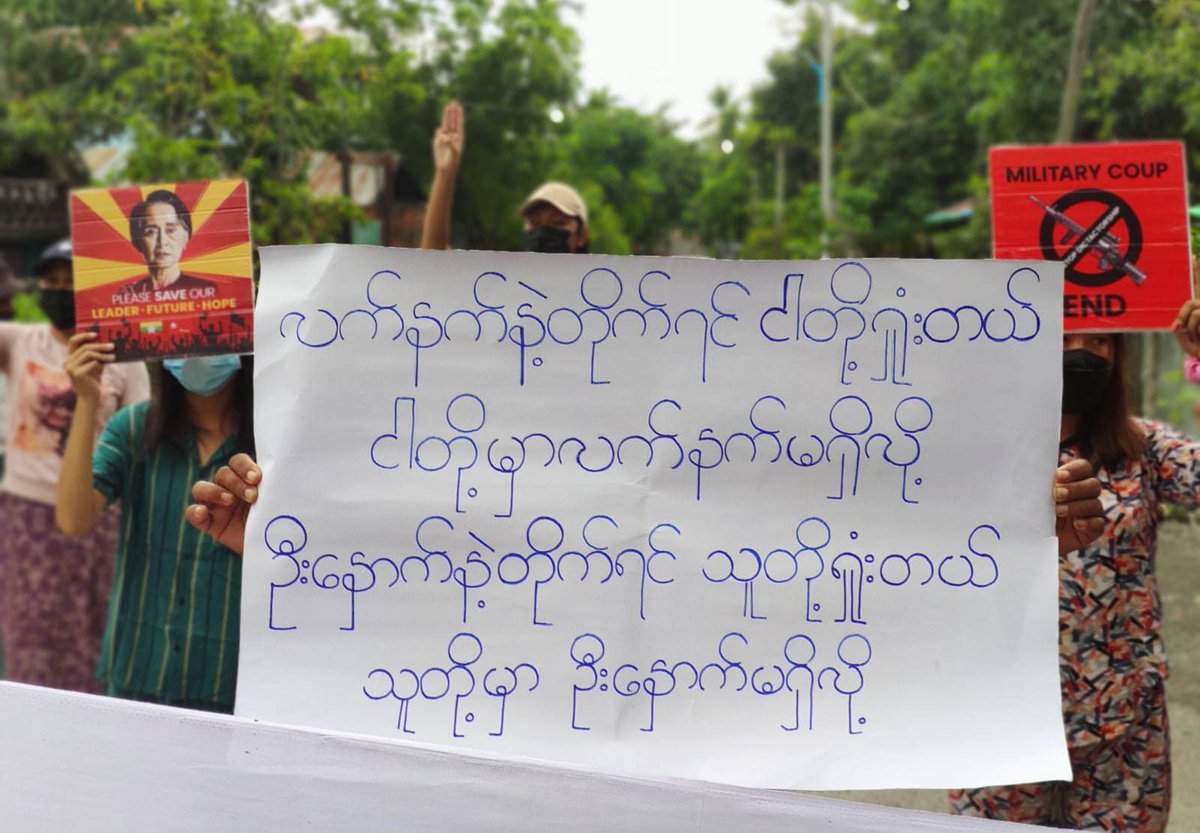 PLEASE SAVE OUR
LEADER · FUTURE · HOPE
MILITARY COUP
STOP DICTATORSHIP
END
လက်နက်နဲ့တိုက်ရင် ငါတို့ရှုံးတယ်
ငါတို့မှာလက်နက်မရှိလို့
ဦးနှောက်နဲ့တိုက်ရင် သူတို့ရှုံးတယ်
သူတို့မှာ ဦးနှောက်မရှိလို့